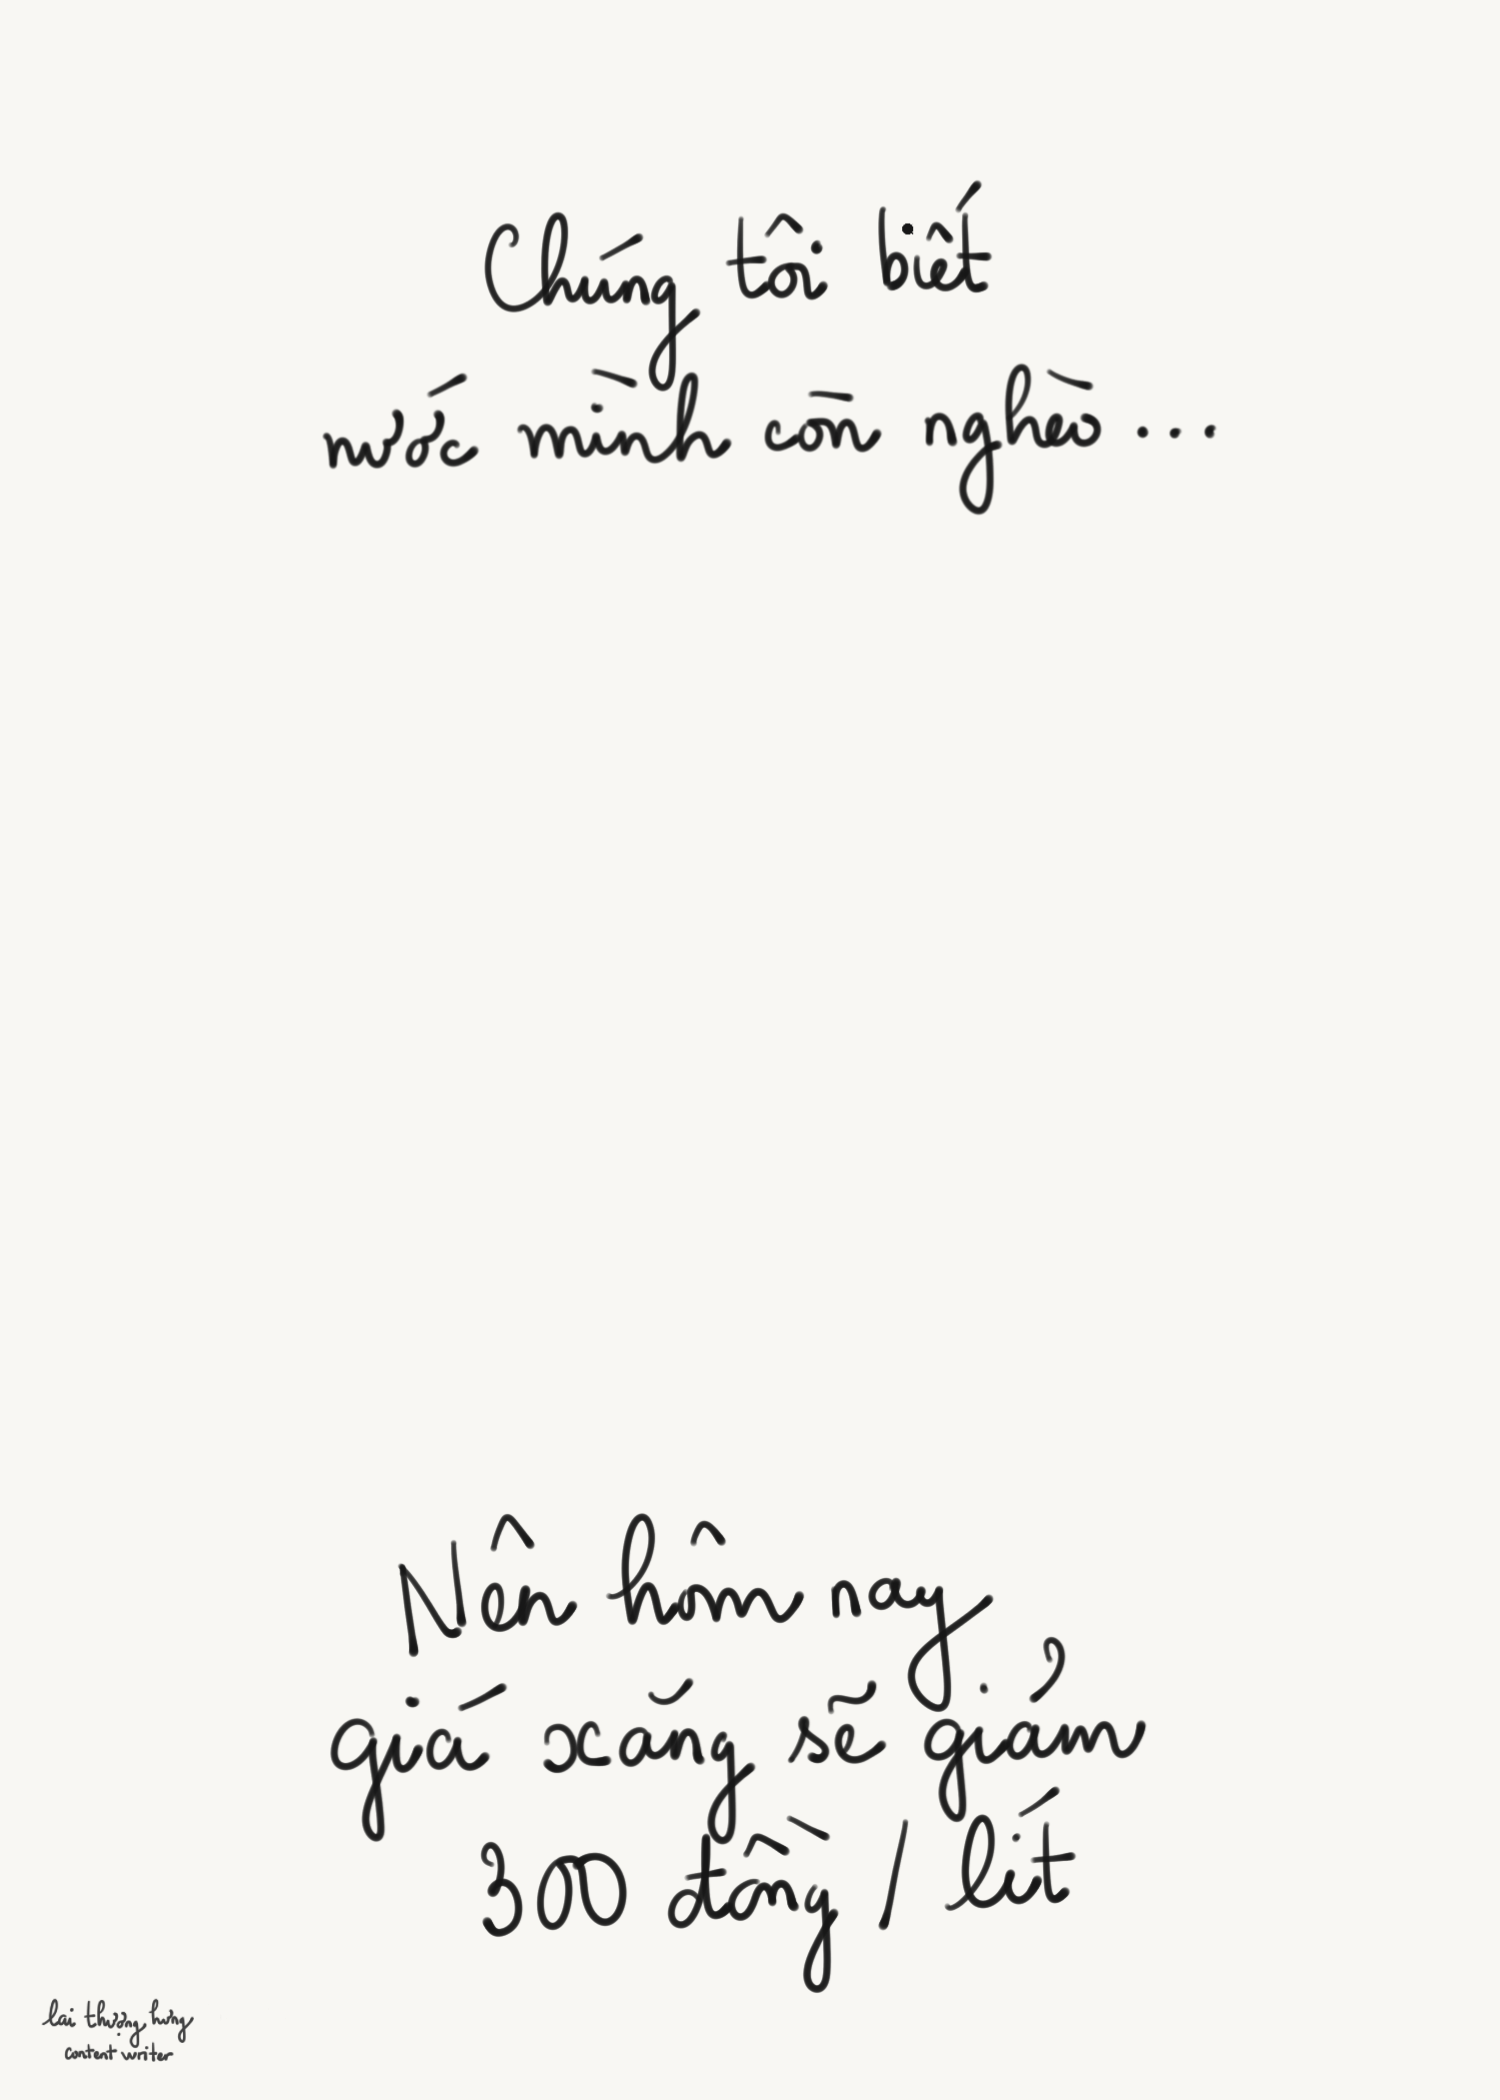 Chúng tôi biết
nước mình còn nghèo...
Nên hôm nay
giá xăng sẽ giảm
300 đồng / lít
lai thượng hưng
content writer